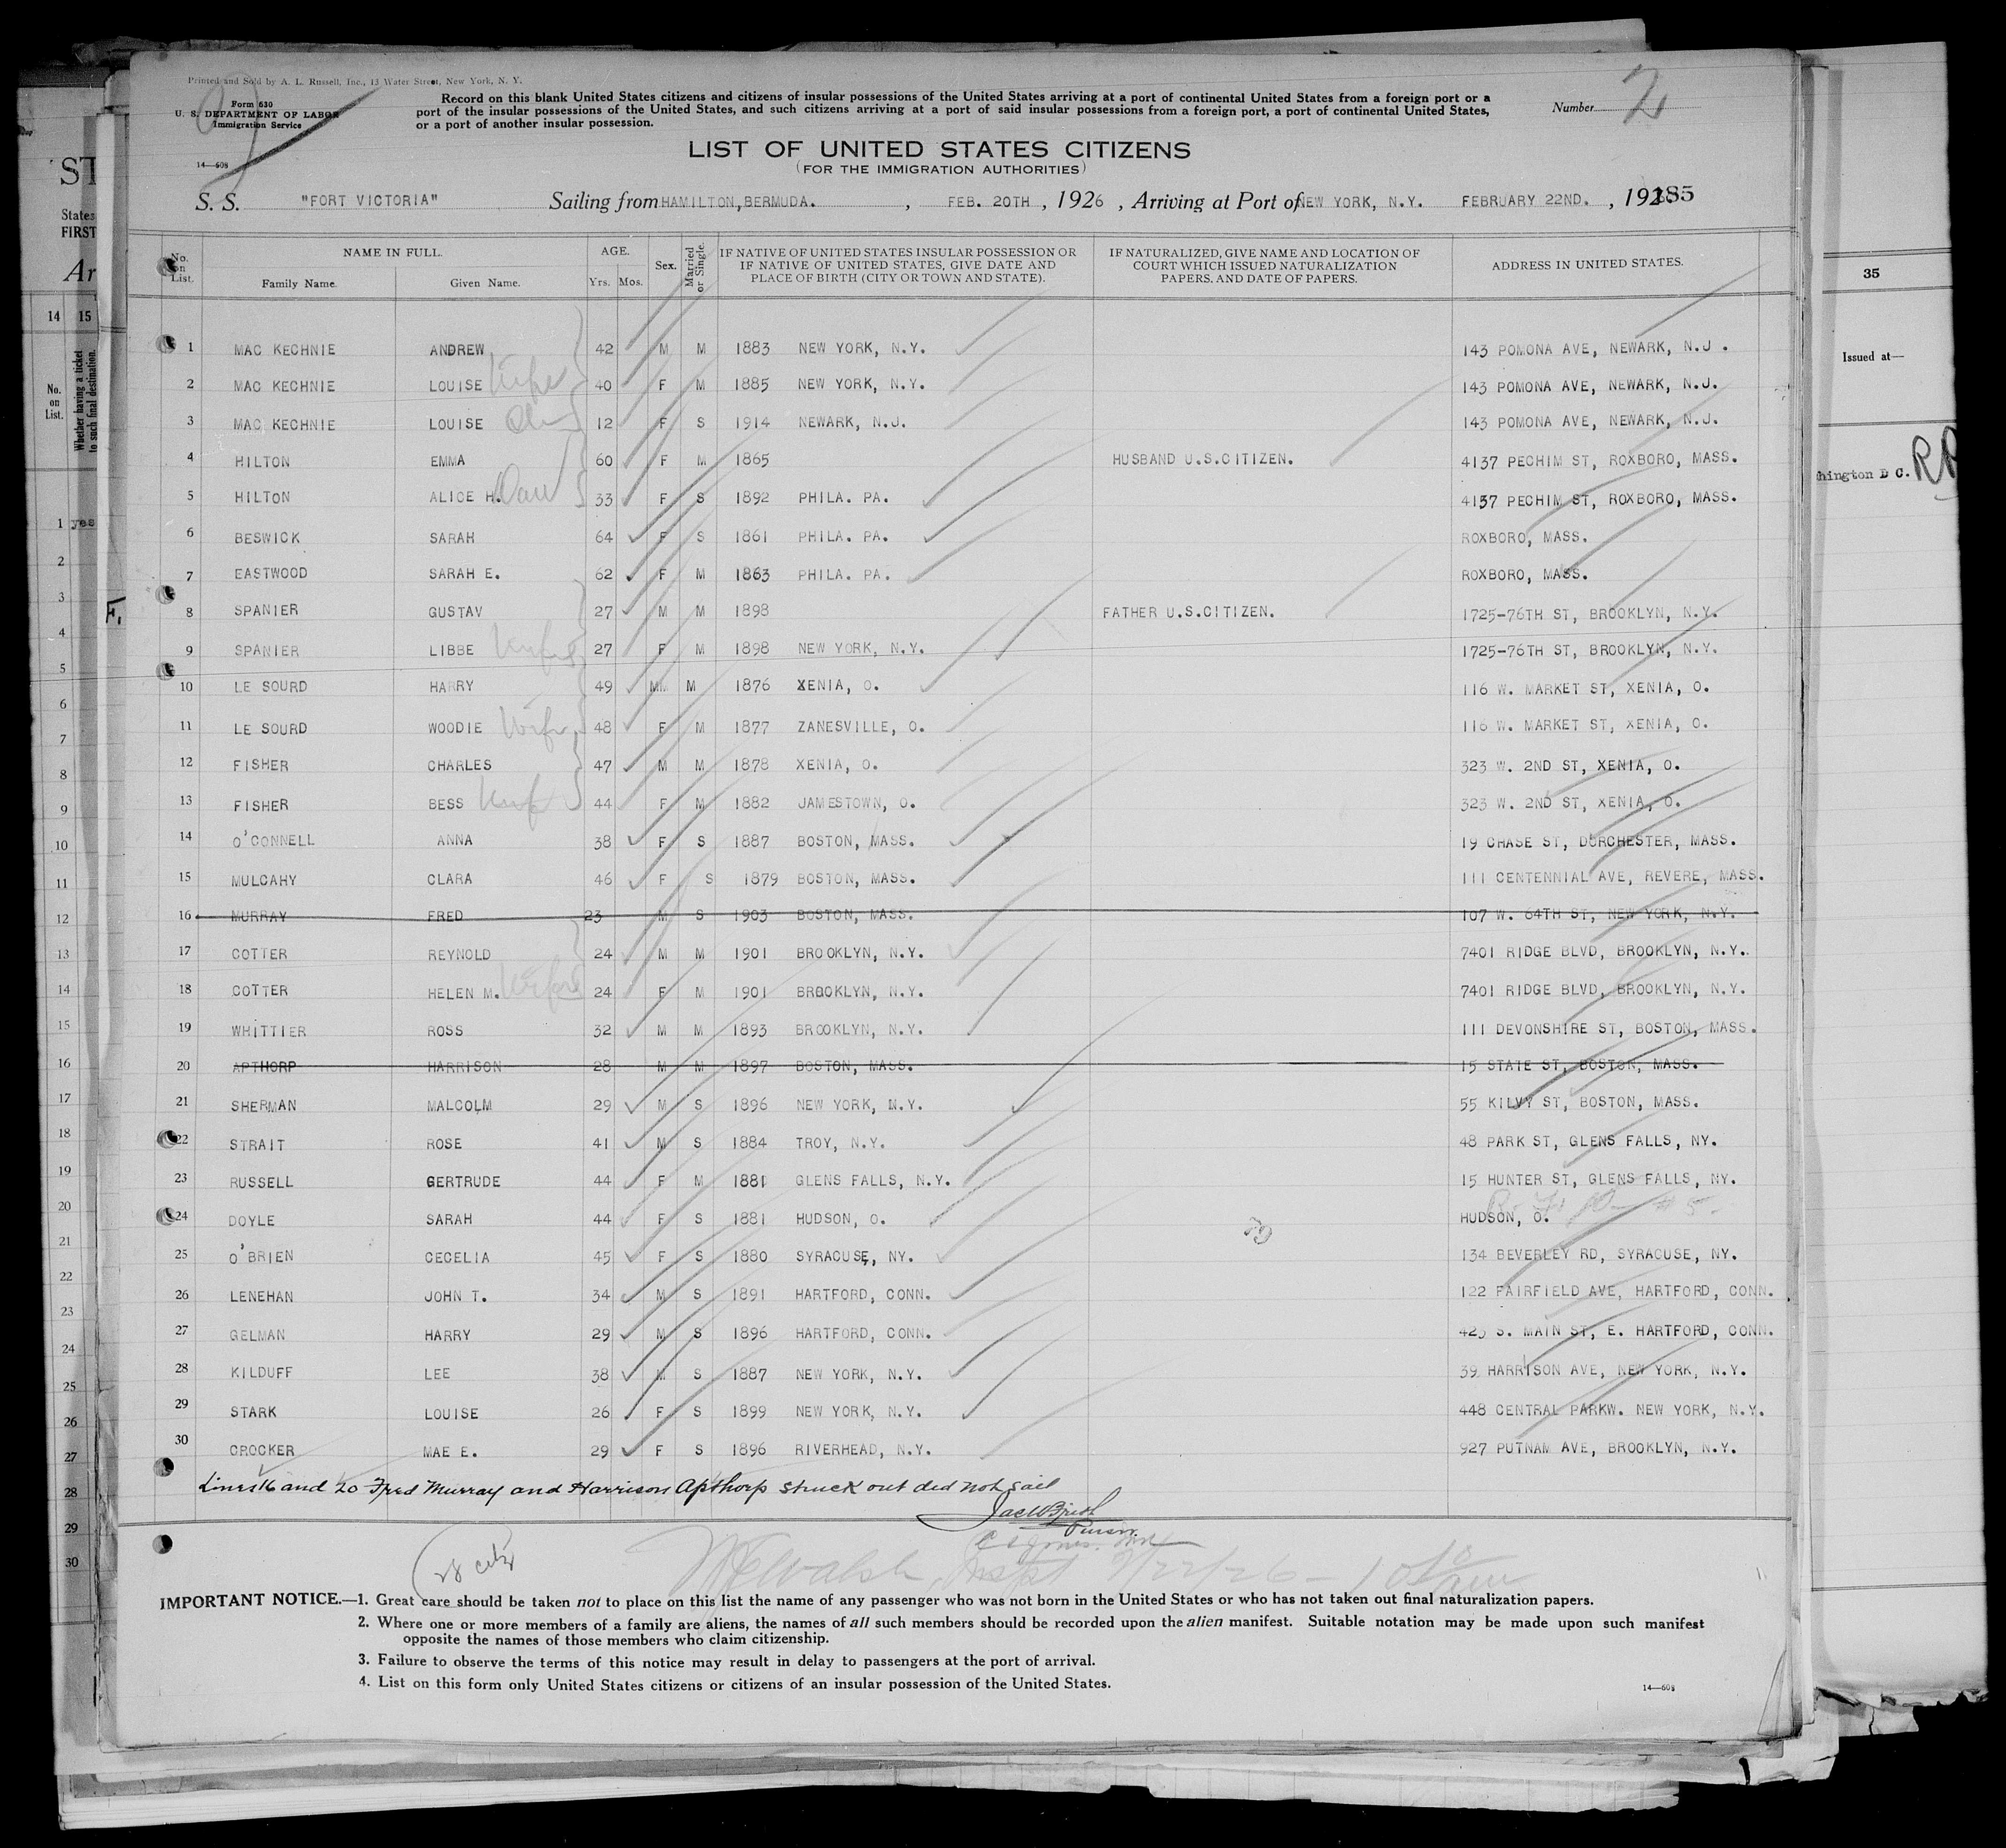 Printed and Sold by A. L. Russell, Inc., 13 Water Street, New York, N. Y.
Form 630
U. S. DEPARTMENT OF LABOR
Immigration Service
14—608
Record on this blank United States citizens and citizens of insular possessions of the United States arriving at a port of continental United States from a foreign port or a
port of the insular possessions of the United States, and such citizens arriving at a port of said insular possessions from a foreign port, a port of continental United States,
or a port of another insular possession.
Number 2
LIST OF UNITED STATES CITIZENS
(FOR THE IMMIGRATION AUTHORITIES)
S. S. "FORT VICTORIA" Sailing from HAMILTON, BERMUDA. , FEB. 20TH , 1926 , Arriving at Port of NEW YORK, N.Y. FEBRUARY 22ND. , 192 185
No. on List. NAME IN FULL. AGE. Sex. Married or Single. IF NATIVE OF UNITED STATES INSULAR POSSESSION OR IF NATIVE OF UNITED STATES, GIVE DATE AND PLACE OF BIRTH (CITY OR TOWN AND STATE). IF NATURALIZED, GIVE NAME AND LOCATION OF COURT WHICH ISSUED NATURALIZATION PAPERS, AND DATE OF PAPERS. ADDRESS IN UNITED STATES.
Family Name. Given Name. Yrs. Mos.
1 MAC KECHNIE ANDREW 42 M M 1883 NEW YORK, N.Y. 143 POMONA AVE, NEWARK, N.J.
2 MAC KECHNIE LOUISE Wife 40 F M 1885 NEW YORK, N.Y. 143 POMONA AVE, NEWARK, N.J.
3 MAC KECHNIE LOUISE 12 F S 1914 NEWARK, N.J. 143 POMONA AVE, NEWARK, N.J.
4 HILTON EMMA 60 F M 1865 HUSBAND U.S.CITIZEN. 4137 PECHIM ST, ROXBORO, MASS.
5 HILTON ALICE H. Dau 33 F S 1892 PHILA. PA. 4137 PECHIM ST, ROXBORO, MASS.
6 BESWICK SARAH 64 F S 1861 PHILA. PA. ROXBORO, MASS.
7 EASTWOOD SARAH E. 62 F M 1863 PHILA. PA. ROXBORO, MASS.
8 SPANIER GUSTAV 27 M M 1898 FATHER U.S.CITIZEN. 1725-76TH ST, BROOKLYN, N.Y.
9 SPANIER LIBBE Wife 27 F M 1898 NEW YORK, N.Y. 1725-76TH ST, BROOKLYN, N.Y.
10 LE SOURD HARRY 49 M M 1876 XENIA, O. 116 W. MARKET ST, XENIA, O.
11 LE SOURD WOODIE Wife 48 F M 1877 ZANESVILLE, O. 116 W. MARKET ST, XENIA, O.
12 FISHER CHARLES 47 M M 1878 XENIA, O. 323 W. 2ND ST, XENIA, O.
13 FISHER BESS Wife 44 F M 1882 JAMESTOWN, O. 323 W. 2ND ST, XENIA, O.
14 O'CONNELL ANNA 38 F S 1887 BOSTON, MASS. 19 CHASE ST, DORCHESTER, MASS.
15 MULCAHY CLARA 46 F S 1879 BOSTON, MASS. 111 CENTENNIAL AVE, REVERE, MASS.
16 MURRAY FRED 23 M S 1903 BOSTON, MASS. 107 W. 64TH ST, NEW YORK, N.Y.
17 COTTER REYNOLD 24 M M 1901 BROOKLYN, N.Y. 7401 RIDGE BLVD, BROOKLYN, N.Y.
18 COTTER HELEN M. Wife 24 F M 1901 BROOKLYN, N.Y. 7401 RIDGE BLVD, BROOKLYN, N.Y.
19 WHITTIER ROSS 32 M M 1893 BROOKLYN, N.Y. 111 DEVONSHIRE ST, BOSTON, MASS.
20 APTHORP HARRISON 28 M M 1897 BOSTON, MASS. 15 STATE ST, BOSTON, MASS.
21 SHERMAN MALCOLM 29 M S 1896 NEW YORK, N.Y. 55 KILVY ST, BOSTON, MASS.
22 STRAIT ROSE 41 M S 1884 TROY, N.Y. 48 PARK ST, GLENS FALLS, NY.
23 RUSSELL GERTRUDE 44 F M 1881 GLENS FALLS, N.Y. 15 HUNTER ST, GLENS FALLS, NY.
24 DOYLE SARAH 44 F S 1881 HUDSON, O. HUDSON, O. R. F. D. #5-
25 O'BRIEN CECELIA 45 F S 1880 SYRACUSE, NY. 134 BEVERLEY RD, SYRACUSE, NY.
26 LENEHAN JOHN T. 34 M S 1891 HARTFORD, CONN. 122 FAIRFIELD AVE, HARTFORD, CONN.
27 GELMAN HARRY 29 M S 1896 HARTFORD, CONN. 425 S. MAIN ST, E. HARTFORD, CONN.
28 KILDUFF LEE 38 M S 1887 NEW YORK, N.Y. 39 HARRISON AVE, NEW YORK, N.Y.
29 STARK LOUISE 26 F S 1899 NEW YORK, N.Y. 448 CENTRAL PARKW. NEW YORK, N.Y.
30 CROCKER MAE E. 29 F S 1896 RIVERHEAD, N.Y. 927 PUTNAM AVE, BROOKLYN, N.Y.
Lines 16 and 20 Fred Murray and Harrison Apthorp struck out did not sail
Purser.
(28 citz
Walsh, Inspt 2/22/26 - 10
IMPORTANT NOTICE.—1. Great care should be taken not to place on this list the name of any passenger who was not born in the United States or who has not taken out final naturalization papers.
2. Where one or more members of a family are aliens, the names of all such members should be recorded upon the alien manifest. Suitable notation may be made upon such manifest
opposite the names of those members who claim citizenship.
3. Failure to observe the terms of this notice may result in delay to passengers at the port of arrival.
4. List on this form only United States citizens or citizens of an insular possession of the United States.
14—608
ST
States
FIRST
Ar
14 15
No. on List.
Whether having a ticket to such final destination.
1 yes
2
3
4
5
6
7
8
9
10
11
12
13
14
15
16
17
18
19
20
21
22
23
24
25
26
27
28
29
30
F.
35
Issued at—
hington D C.